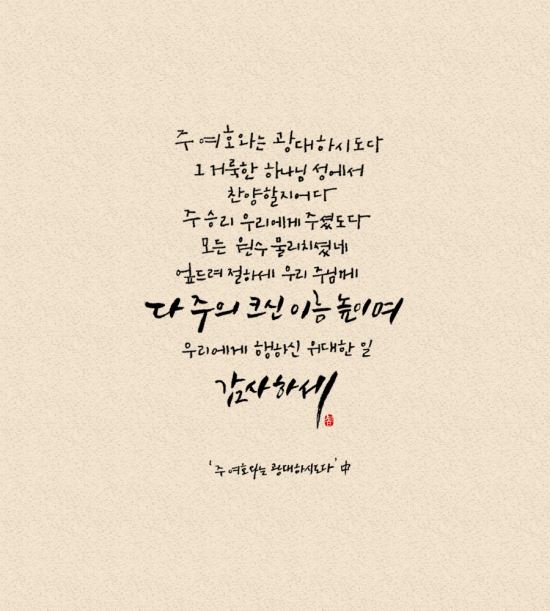 주 여호와는 광대하시도다
그 거룩한 하나님 성에서
찬양할지어다
주 승리 우리에게 주셨도다
모든 원수 물리치셨네
엎드려 절하세 우리 주님께
다 주의 크신 이름 높이며
우리에게 행하신 위대한 일
감사하세
'주 여호와는 광대하시도다' 中